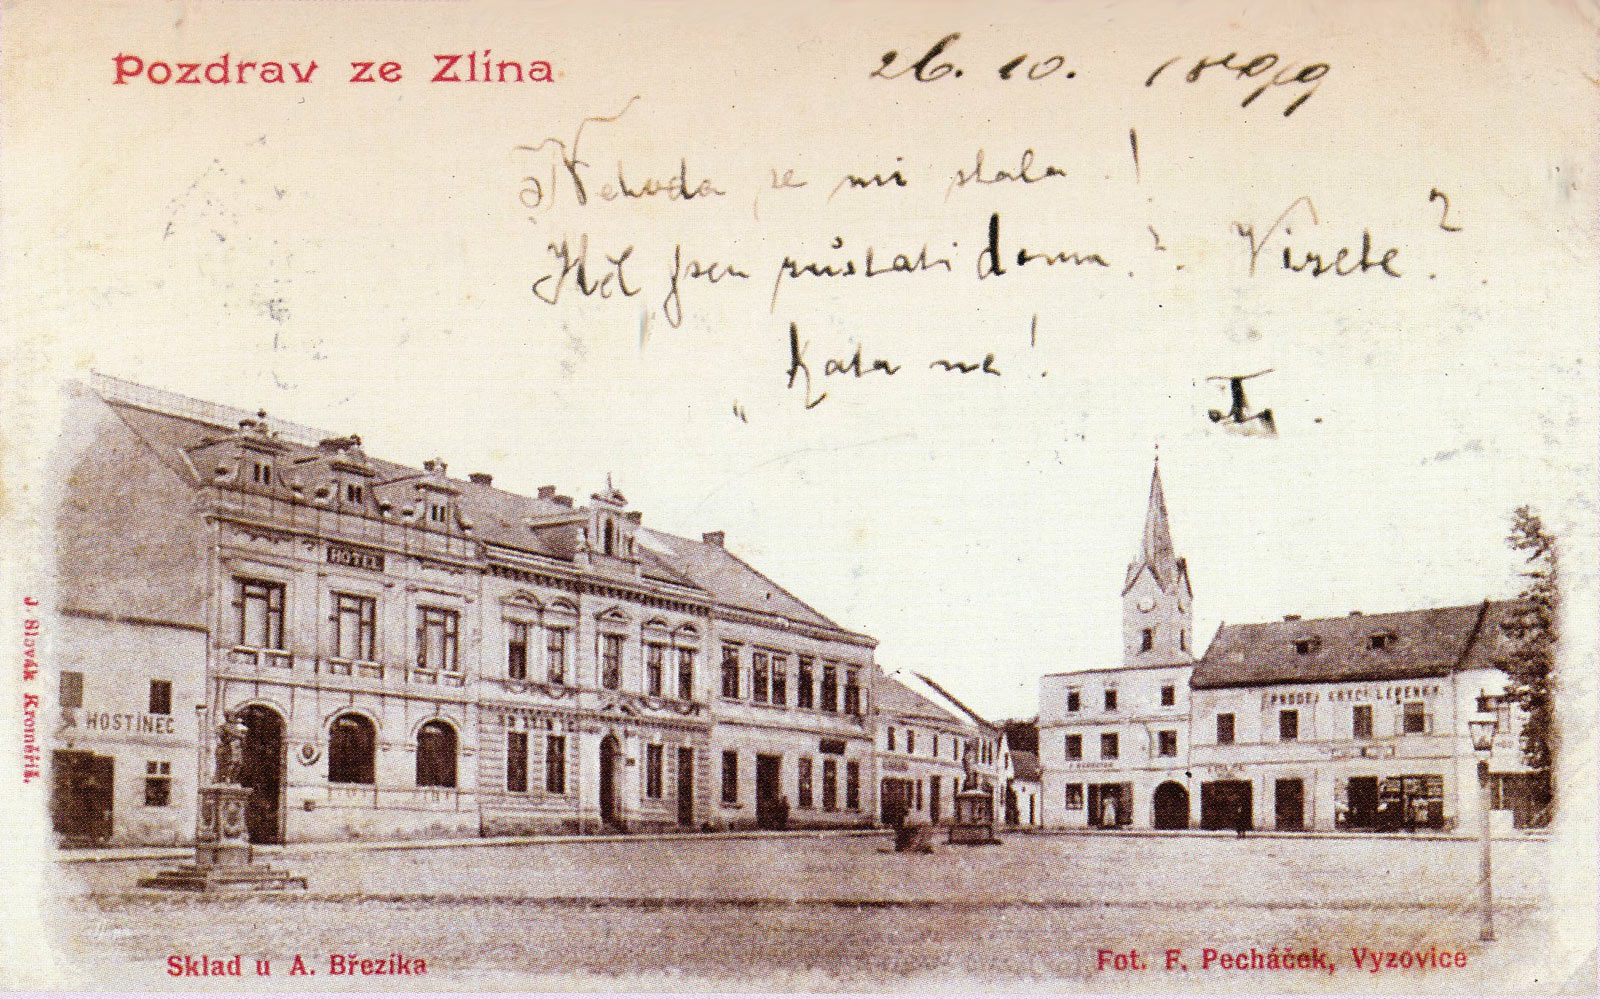 Pozdrav ze Zlína
26. 10. 1899
Nehoda se mi stala!
jsem zůstati doma?
Kata ne!
HOTEL
HOSTINEC
PRODEJ KRYCÍ LEPENKY.
J. Slovák Kroměříž.
Sklad u A. Březíka
Fot. F. Pecháček, Vyzovice